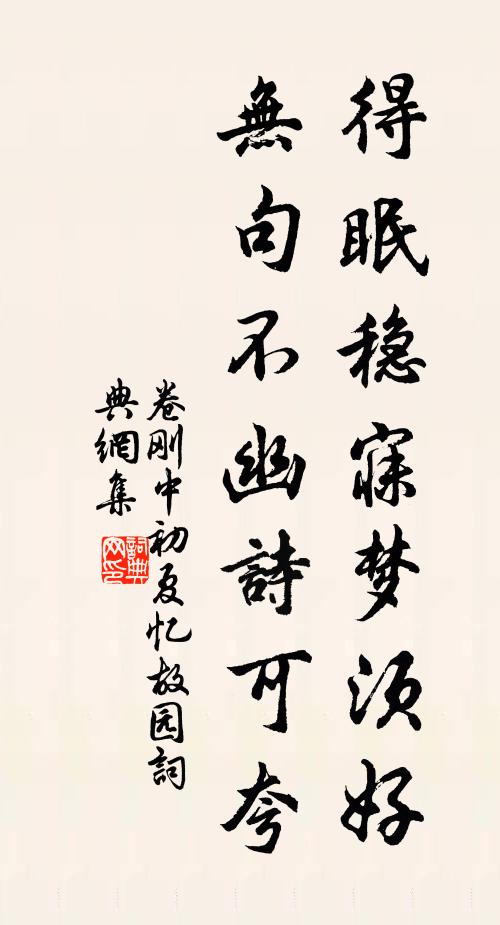 得眠稳寐梦须好
無句不幽詩可夸
卷刚中初夏忆故园詞
典網集
詞典网印